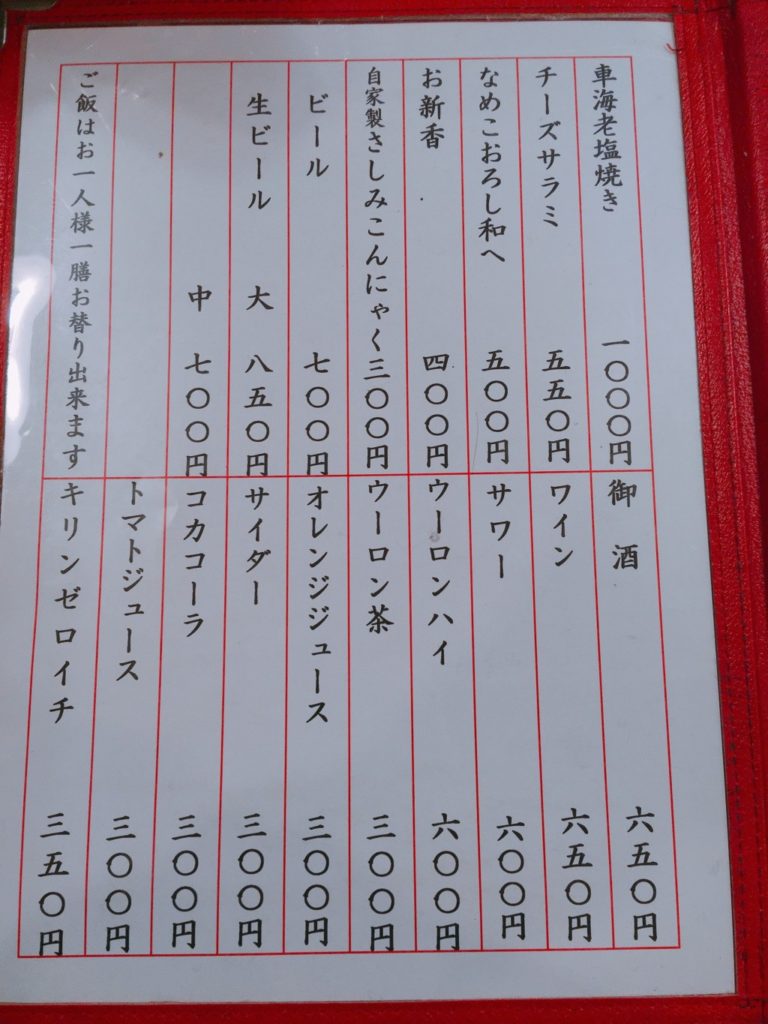 車海老塩焼き 一〇〇〇円
チーズサラミ 五五〇円
なめこおろし和へ 五〇〇円
お新香 四〇〇円
自家製さしみこんにゃく 三〇〇円
ビール 七〇〇円
生ビール 大 八五〇円
中 七〇〇円
ご飯はお一人様一膳お替り出来ます
御酒 六五〇円
ワイン 六五〇円
サワー 六〇〇円
ウーロンハイ 六〇〇円
ウーロン茶 三〇〇円
オレンジジュース 三〇〇円
サイダー 三〇〇円
コカコーラ 三〇〇円
トマトジュース 三〇〇円
キリンゼロイチ 三五〇円